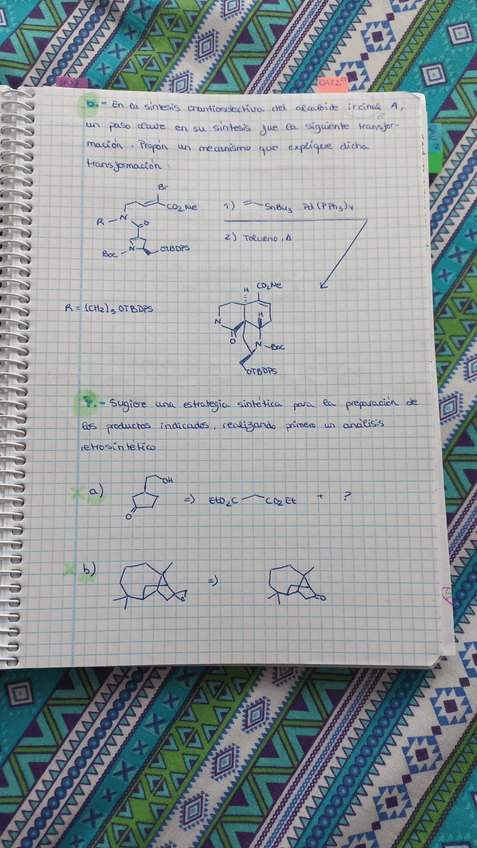 6.- En la síntesis enantioselectiva del alcaloide ircinal A,
un paso clave en su síntesis fue la siguiente transfor-
mación. Propón un mecanismo que explique dicha
transformación.
Br
CO2Me
R - N
O
Boc - N
OTBDPS
1) SnBu3 Pd(PPh3)4
2) Tolueno, Δ
R = (CH2)5 OTBDPS
CO2Me
H
H
N
O
N - Boc
OTBDPS
7.- Sugiere una estrategia sintética para la preparación de
los productos indicados, realizando primero un análisis
retrosintético
a) OH
O
=> EtO2C CO2Et + ?
b) =>
O